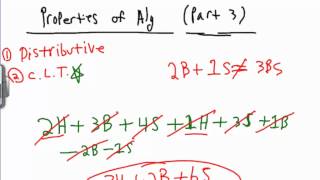 Properties of Alg (Part 3)
① Distributive
② C.L.T.
2B + 1S ≠ 3BS
2H + 3B + 4S + 1H + 3S + 1B
- 2B - 1S
+ 2B + 6S